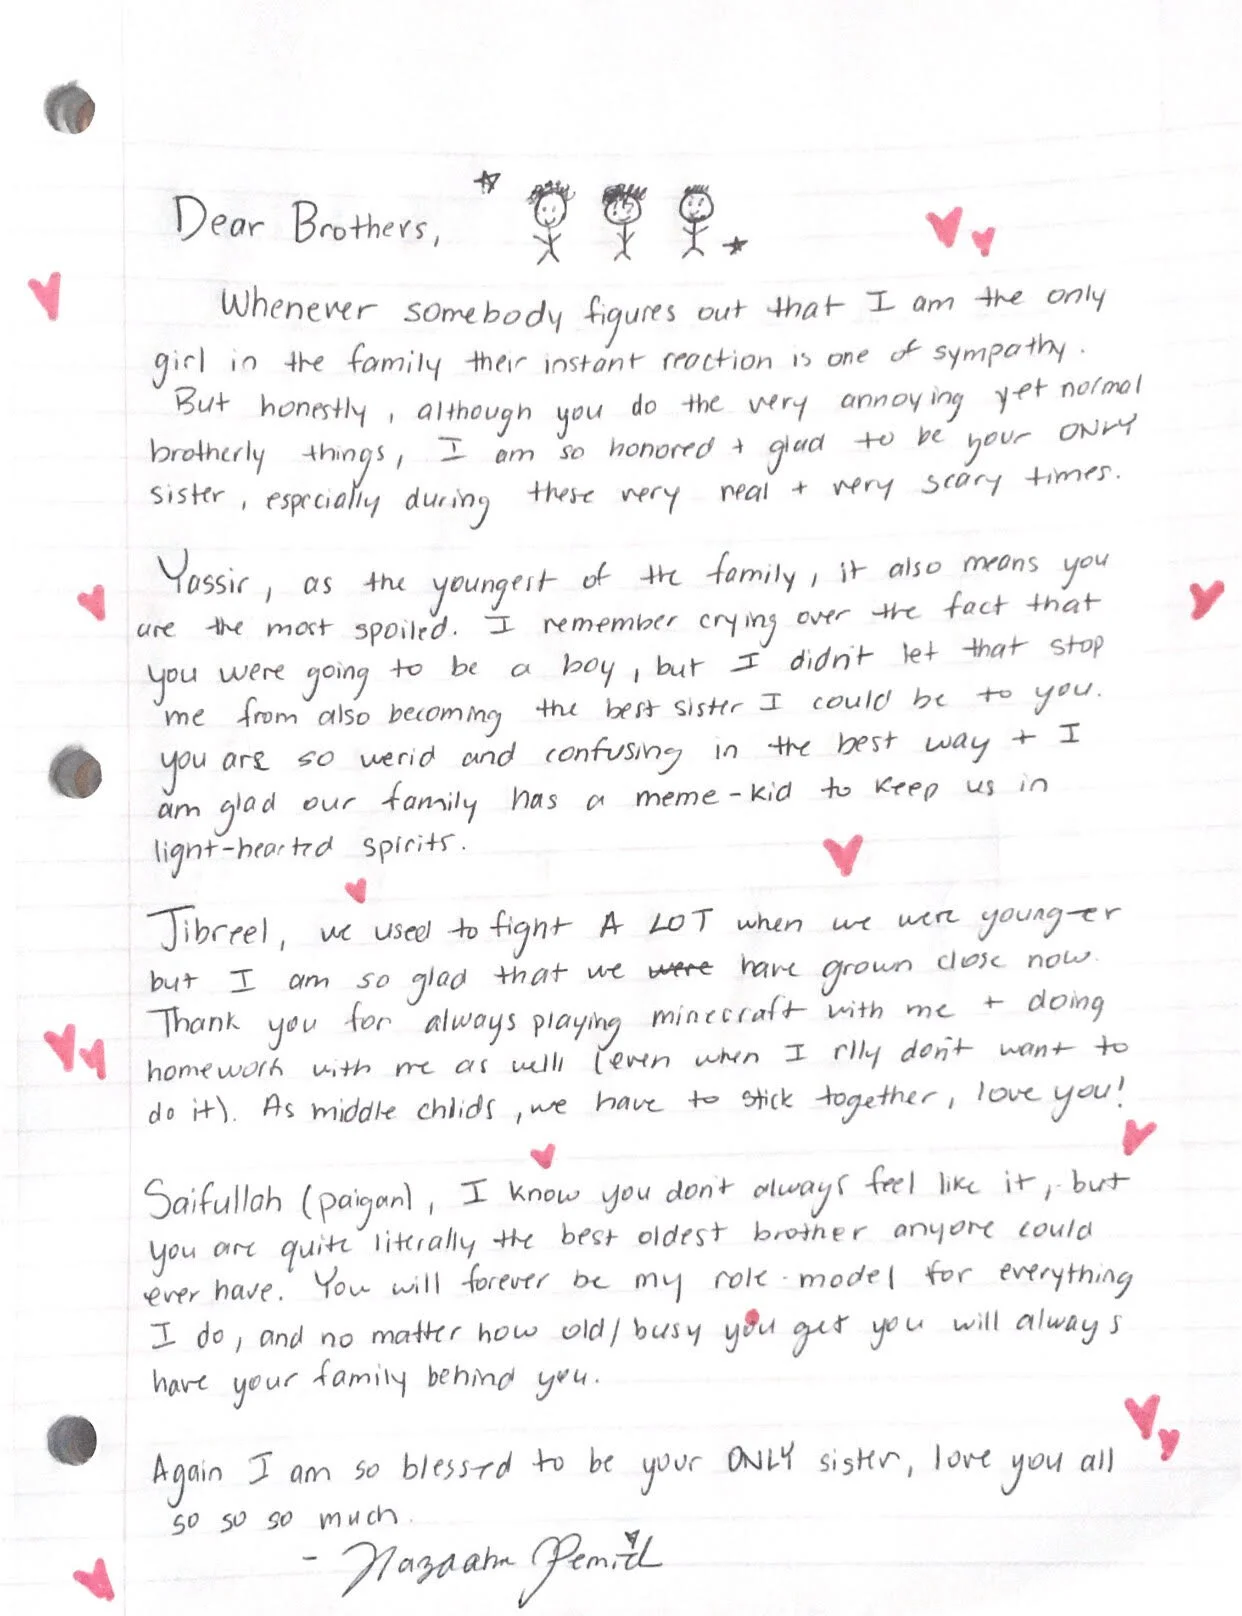 Dear Brothers,
Whenever somebody figures out that I am the only
girl in the family their instant reaction is one of sympathy.
But honestly, although you do the very annoying yet normal
brotherly things, I am so honored + glad to be your ONLY
sister, especially during these very real + very scary times.
Yassir, as the youngest of the family, it also means you
are the most spoiled. I remember crying over the fact that
you were going to be a boy, but I didn't let that stop
me from also becoming the best sister I could be to you.
you are so werid and confusing in the best way + I
am glad our family has a meme-kid to keep us in
light-hearted spirits.
Jibreel, we used to fight A LOT when we were young-er
but I am so glad that we were have grown close now.
Thank you for always playing minecraft with me + doing
homework with me as well (even when I rlly don't want to
do it). As middle chlids, we have to stick together, love you!
Saifullah (paigan), I know you don't always feel like it, but
you are quite literally the best oldest brother anyone could
ever have. You will forever be my role-model for everything
I do, and no matter how old/busy you get you will always
have your family behind you.
Again I am so blessed to be your ONLY sister, love you all
so so so much.
-